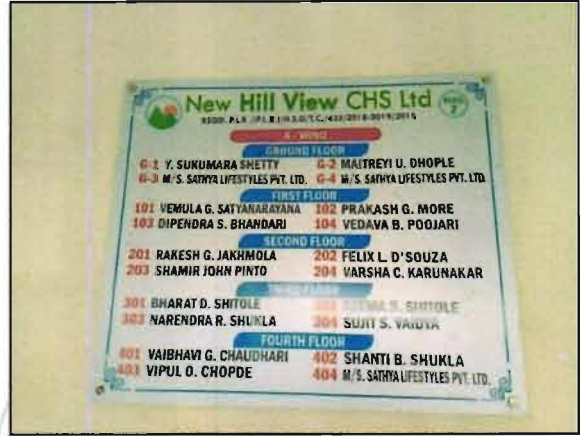 New Hill View CHS Ltd
A - WING
GROUND FLOOR
G-1 Y. SUKUMARA SHETTY G-2 MAITREYI U. DHOPLE
G-3 M/S. SATHYA LIFESTYLES PVT. LTD. G-4 M/S. SATHYA LIFESTYLES PVT. LTD.
FIRST FLOOR
101 VEMULA G. SATYANARAYANA 102 PRAKASH G. MORE
103 DIPENDRA S. BHANDARI 104 VEDAVA B. POOJARI
SECOND FLOOR
201 RAKESH G. JAKHMOLA 202 FELIX L. D'SOUZA
203 SHAMIR JOHN PINTO 204 VARSHA C. KARUNAKAR
301 BHARAT D. SHITOLE S. SHITOLE
303 NARENDRA R. SHUKLA 304 SUJIT S. VAIDYA
FOURTH FLOOR
401 VAIBHAVI G. CHAUDHARI 402 SHANTI B. SHUKLA
403 VIPUL O. CHOPDE 404 M/S. SATHYA LIFESTYLES PVT. LTD.